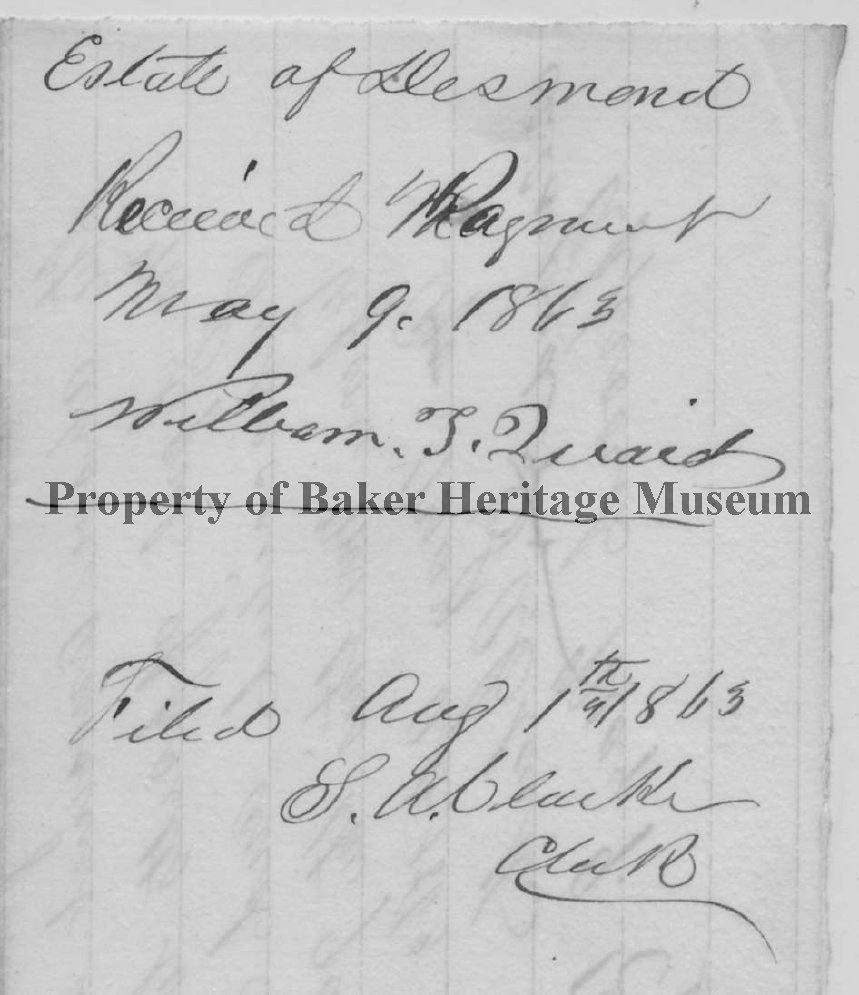 Estate of Desmond
Received Payment
May 9. 1863
William. T. Quaid
Property of Baker Heritage Museum
Filed Aug 1th 1863
S. A. Clarke
Clerk